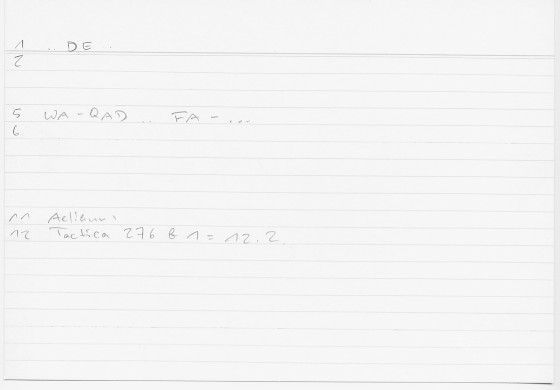 1 .. DE .
2
5 WA - QAD .. FA - ...
6
11 Aelianus
12 Tactica 276 B 1 = 12.2